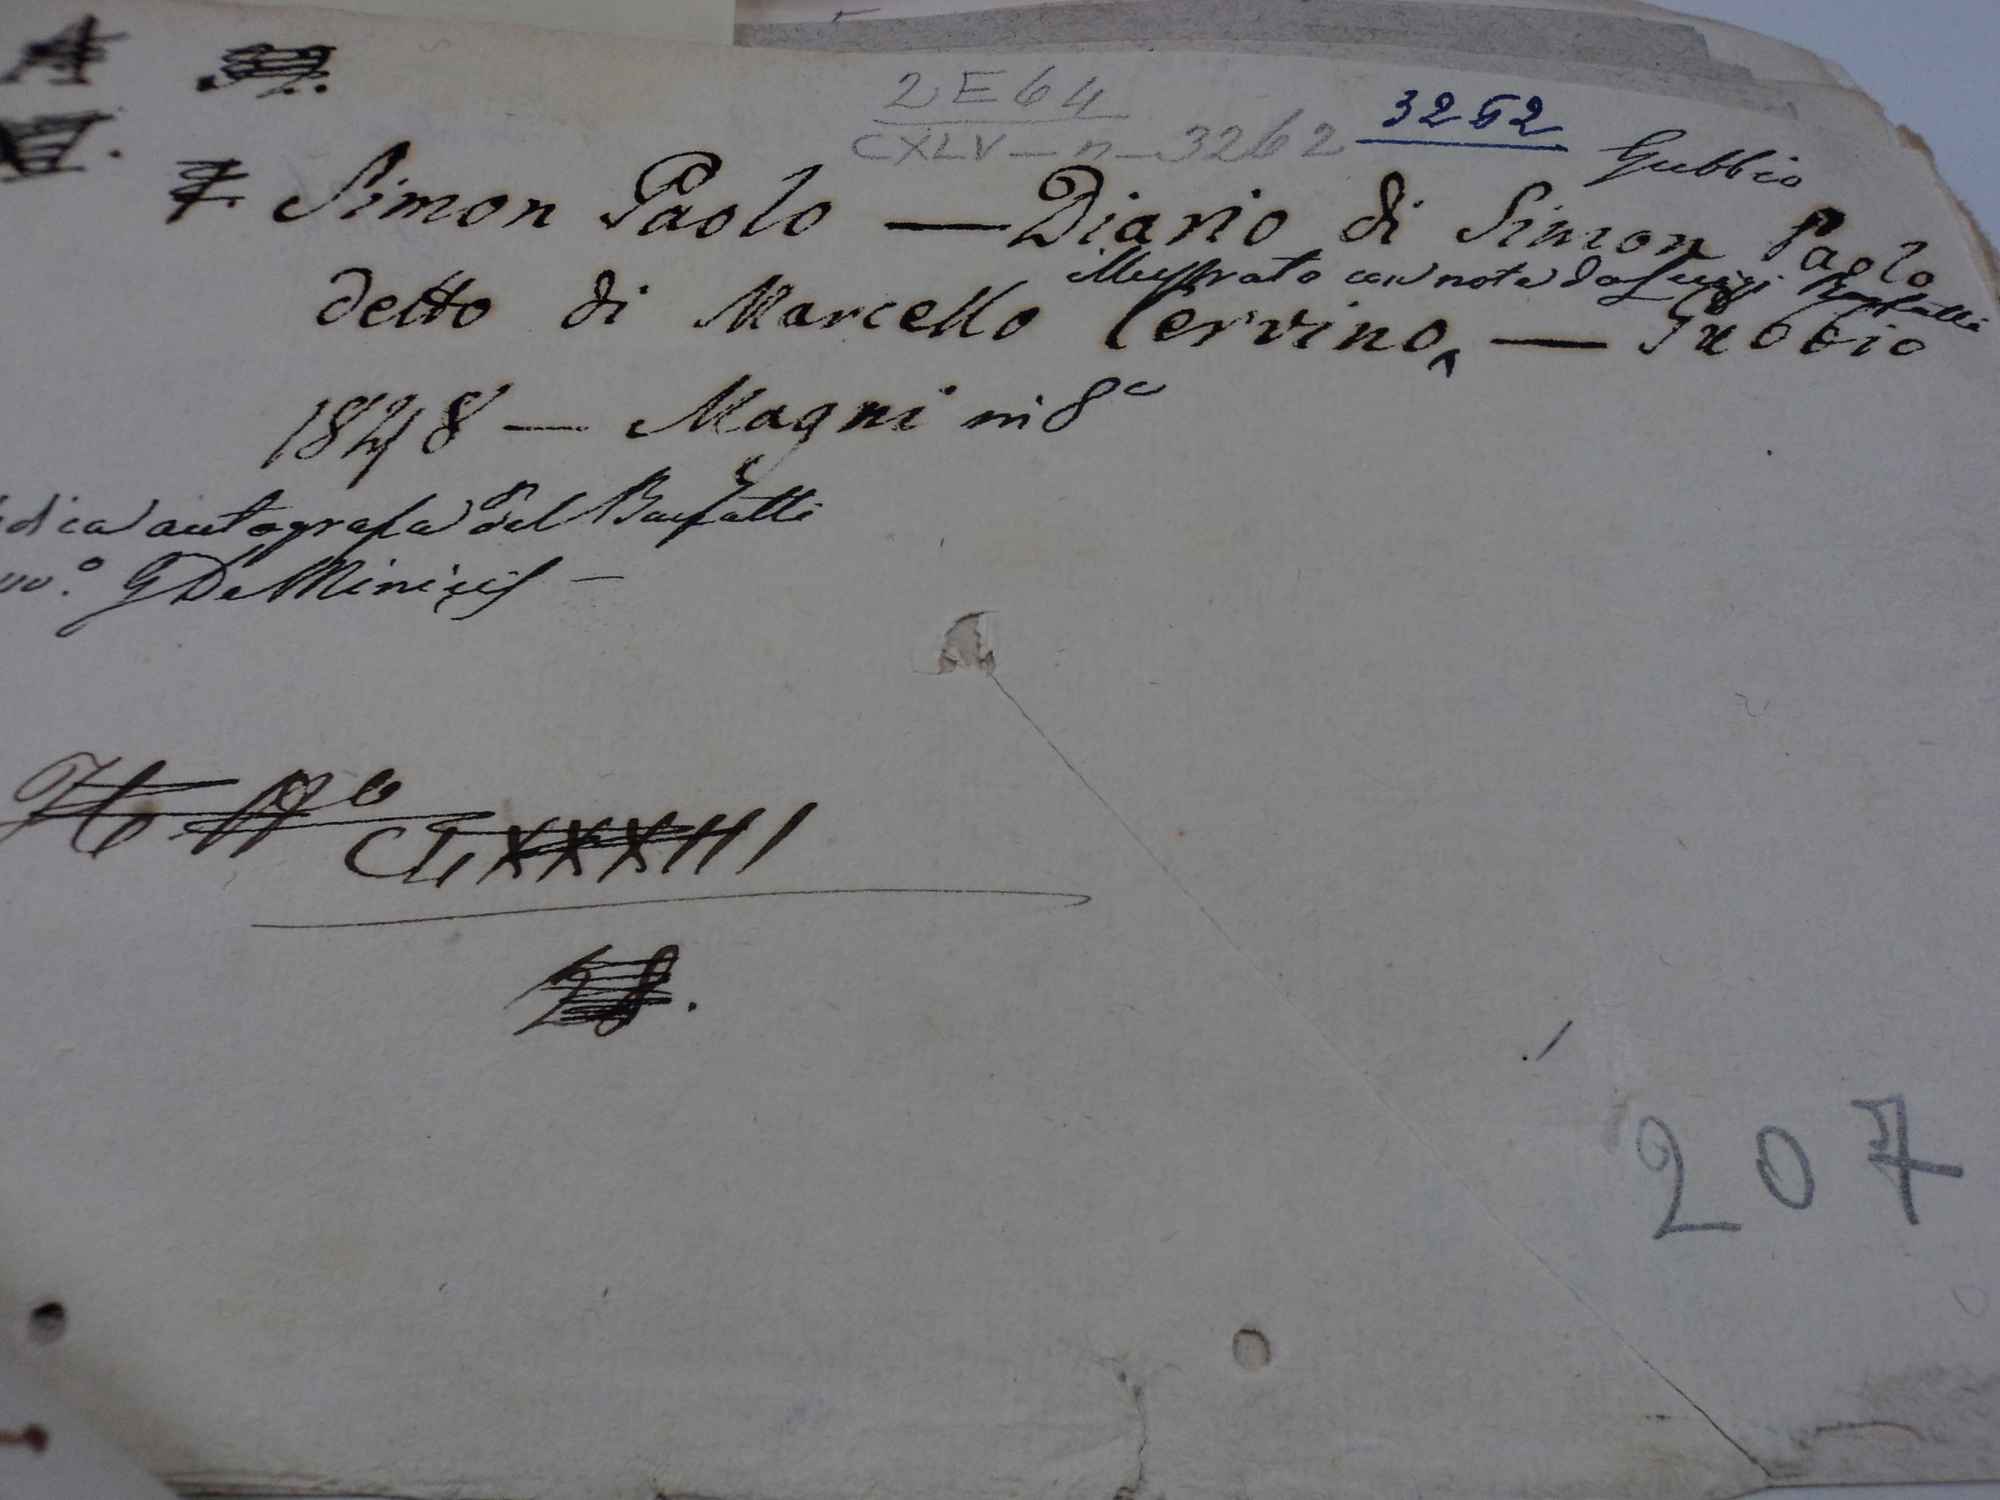 2E64
CXLV - n - 3262
3262
Gubbio
Simon Paolo — Diario di Simon Paolo
illustrato con note da Luigi Bonfatti
detto di Marcello Cervino — Gubbio
1848 — Magni in 8°
dica autografa del Bonfatti
mo.° G De Minicis —
CLXXXIII
28.
207